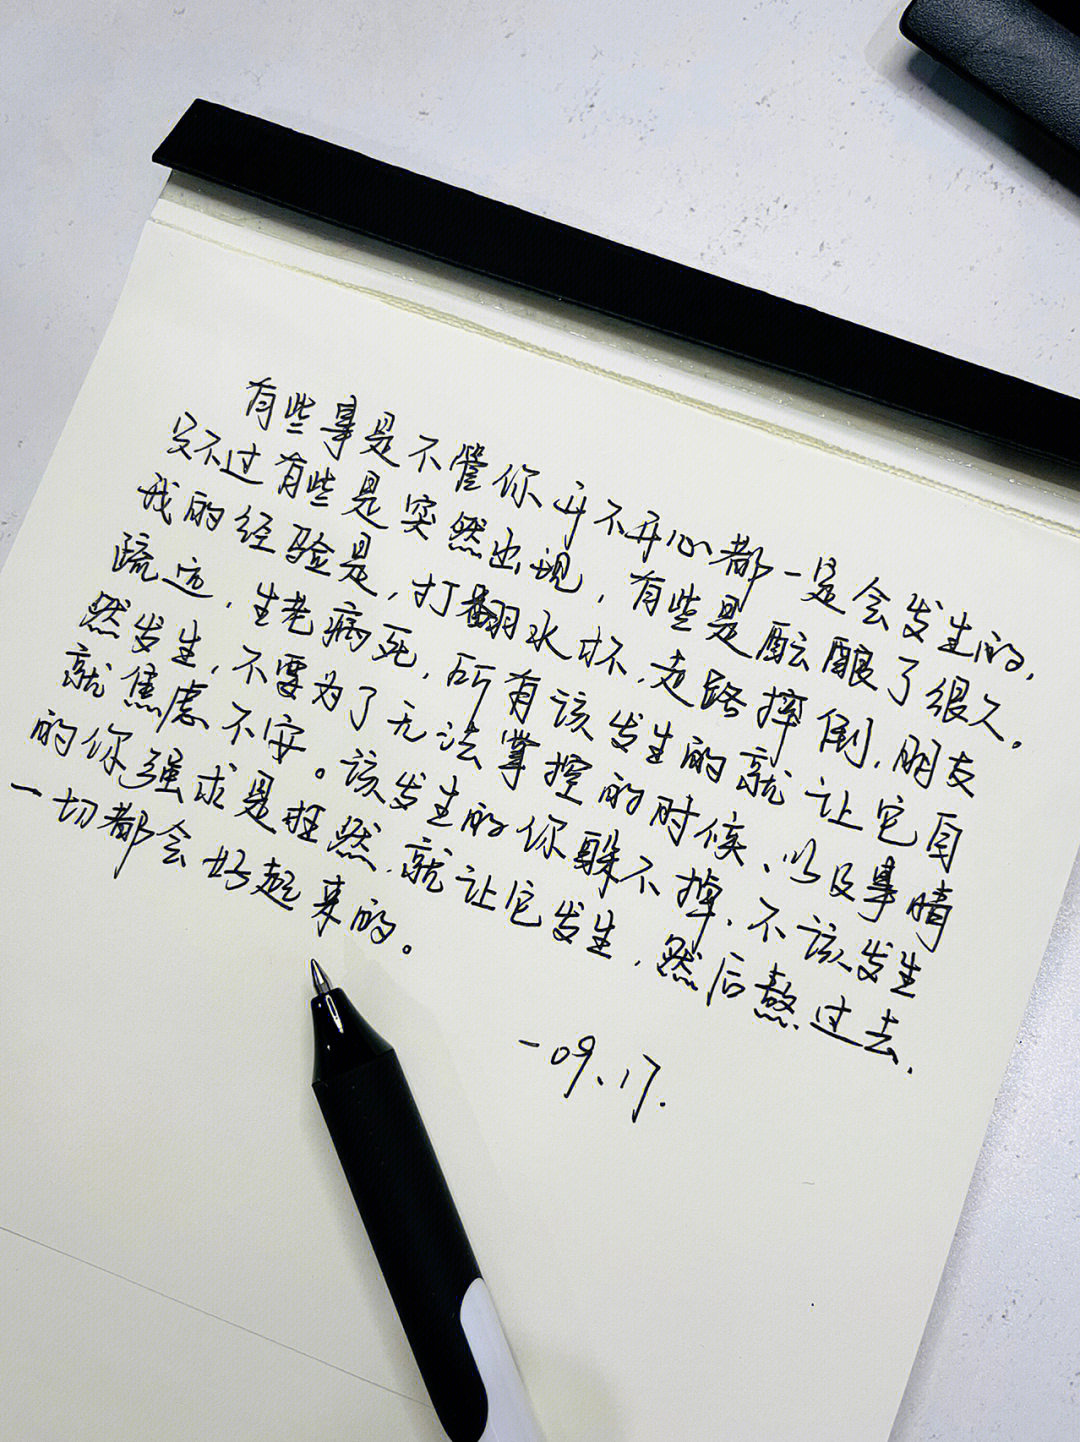 有些事是不管你开不开心都一定会发生的,
只不过有些是突然出现,有些是酝酿了很久。
我的经验是,打翻水杯,走路摔倒,朋友
疏远,生老病死,所有该发生的就让它自
然发生,不要为了无法掌控的时候、以及事晴
就焦虑不安。该发生的你躲不掉、不该发生
的你强求是枉然,就让它发生,然后熬过去,
一切都会好起来的。
-09.17.